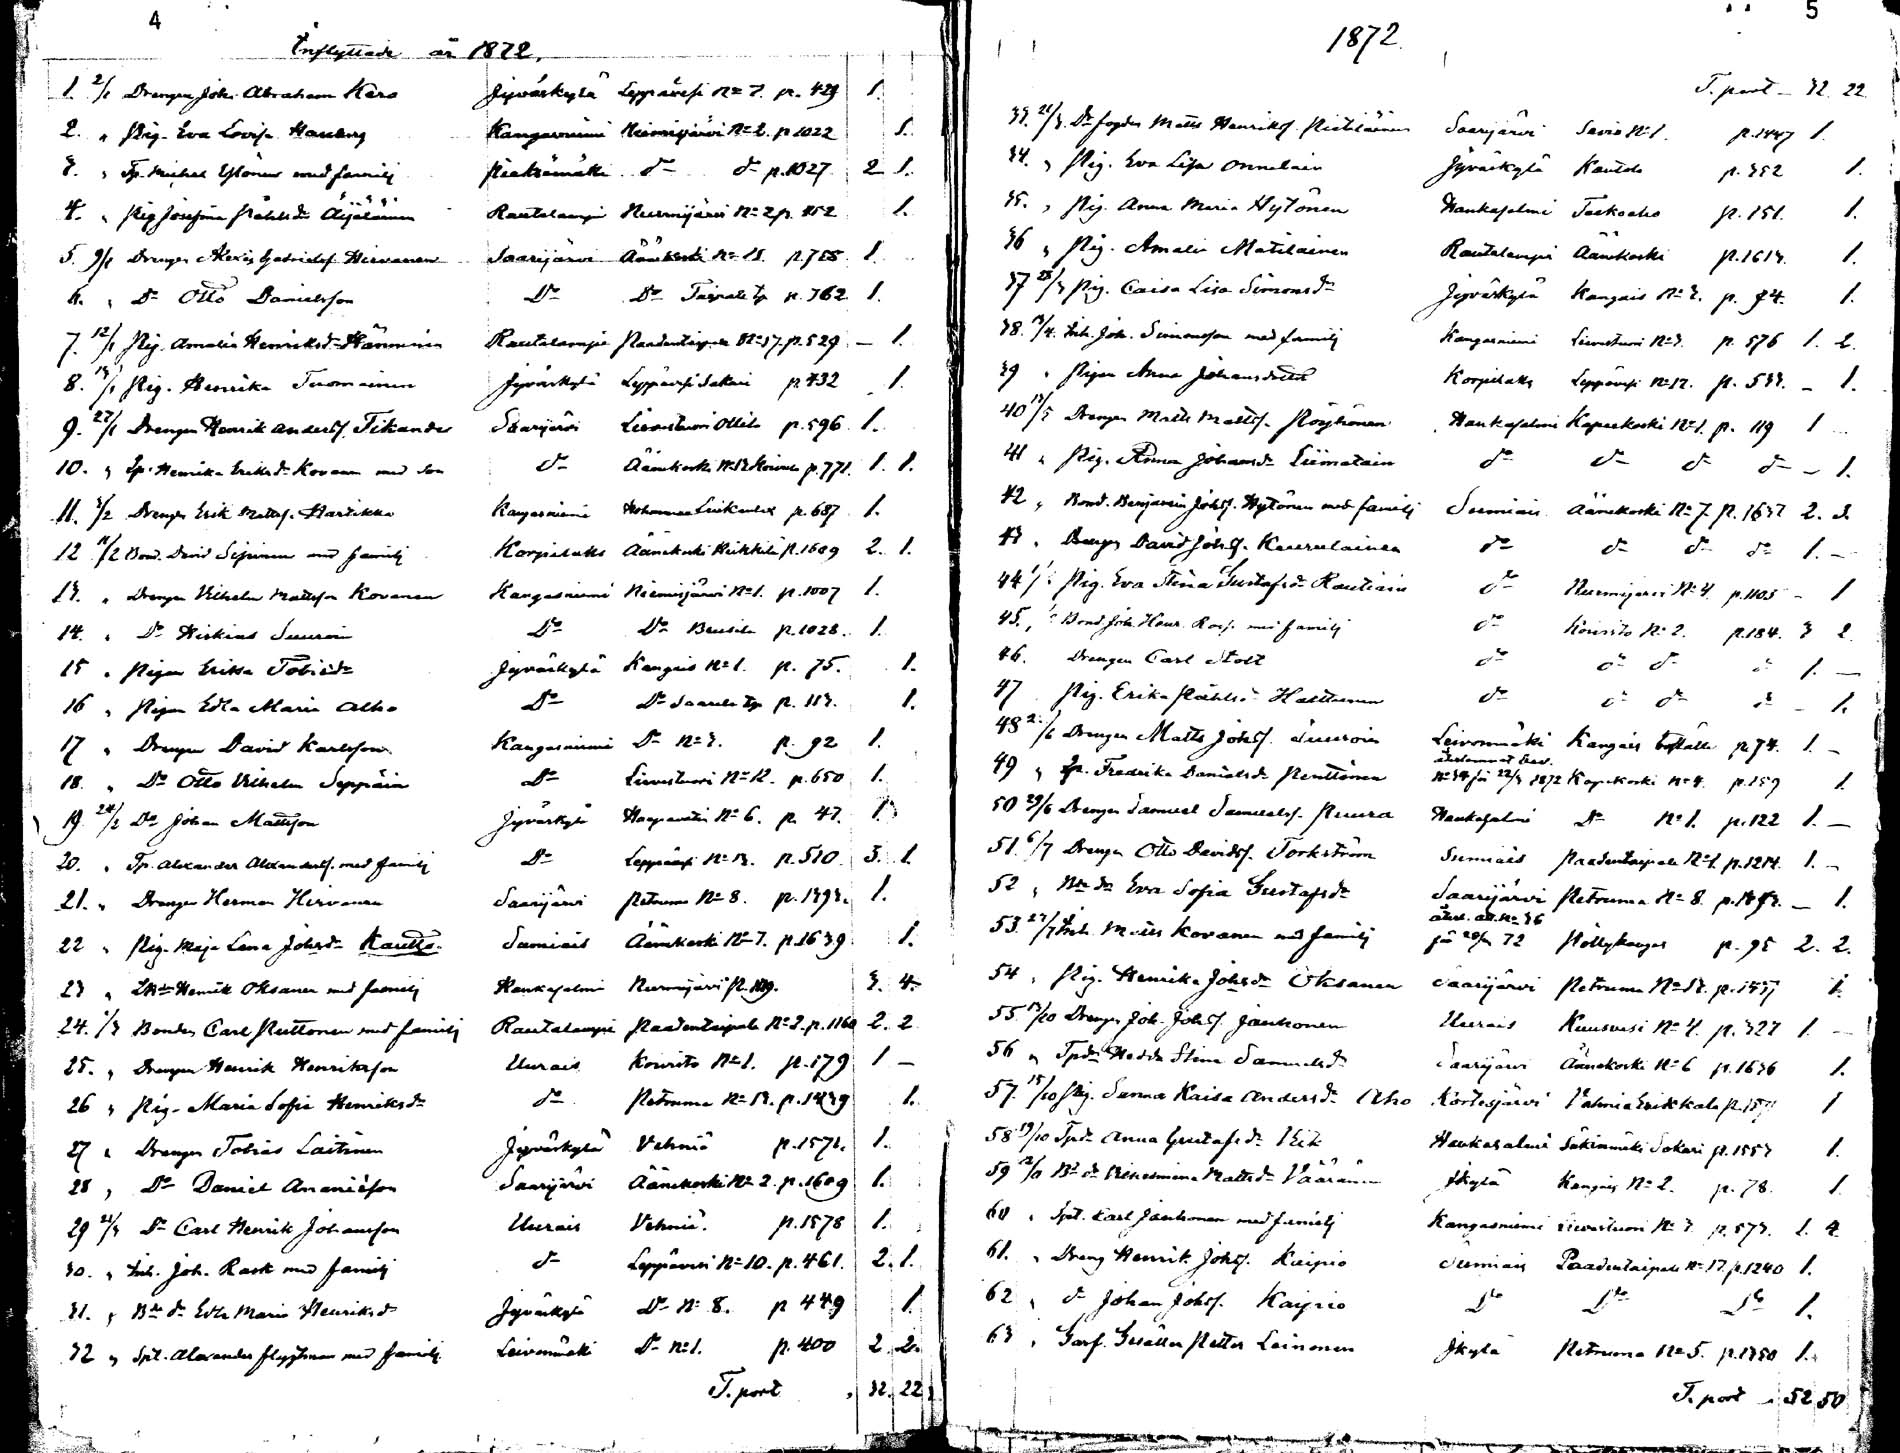 4
Inflyttade år 1872.
1. 2/1 Drengen Joh. Abraham Karo Jyväskylä Leppävesi No 7. p. 429 1.
2. " Pig. Eva Lovisa Kangasniemi Niemisjärvi No 2. p. 1022 1.
3. " Tp. Michel Ylönen med familj Pieksämäki do do p. 1027 2 1.
4. " Pig Josefina Påhlsdr Äijäläinen Rautalampi Nurmijärvi No 2 p. 1.
5. 9/1 Drengen Alexis Gabrielsf. Hirvanen Saarijärvi Äänekoski No 15. p. 1.
6. " Do Otto Danielsson Do Do Taipale tp p. 762 1.
7. 12/1 Pig. Amalia Henriksdr Hänninen Rautalampi Paadentaipale No 17. p. 529 – 1.
8. 13/1 Pig. Henrika Tuomainen Jyväskylä Leppävesi Sakari p. 432 1.
9. 27/1 Drengen Henrik Andersf. Tikander Saarijärvi Lievestuori Ollila p. 596 1.
10. " Henrika Eriksdr Kovanen med son do Äänekoski p. 771. 1. 1.
11. 3/2 Drengen Erik Mattsf. Kangasniemi p. 687 1.
12 11/2 Bond. David med familj Korpilaks Äänekoski p. 1609 2. 1.
13. " Drengen Vilhelm Mattsson Kovanen Kangasniemi Niemisjärvi No 1. p. 1007 1.
14. " Do Hiskias Suuroin Do Do p. 1028. 1.
15 " Pigan Erika Tobiedr Jyväskylä Kangais No 1. p. 75. 1.
16 " Pigan Edla Maria Alho Do Do Saarela tp p. 113. 1.
17 " Drengen David Karlsson Kangasniemi Do No 3. p. 92 1.
18. " Do Otto Vilhelm Seppäin Do Lievestuori No 12. p. 650 1.
19. 24/2 Do Johan Mattsson Jyväskylä Haapavesi No 6. p. 47. 1.
20. " Tp. Alexander Alexandersf. med familj Do Leppävesi No 13. p. 510 3. 1.
21. " Drengen Herman Hirvanen Saarijärvi Petruma No 8. p. 1393. 1.
22 " Pig. Maja Lena Johsdr Kautto. Sumiais Äänekoski No 7. p. 1639 1.
23 " Henrik Oksanen med familj Hankasalmi Nurmijärvi p. 3. 4.
24. 1/3 Bonden Carl Puttonen med familj Rautalampi Paadentaipale No 2. p. 1160 2. 2
25. " Drengen Henrik Henriksson Uurais Koivisto No 1. p. 179 1 –
26 " Pig. Maria Sofia Henriksdr do Petruma No 13. p. 1439 1.
27 " Drengen Tobias Laitinen Jyväskylä Vehniä p. 1571. 1.
28 " Do Daniel Ananiesson Saarijärvi Äänekoski No 2. p. 1609 1.
29 21/3 Do Carl Henrik Johansson Uurais Vehniä. p. 1578 1.
30. " Inh. Joh. Rask med familj do Leppävesi No 10. p. 461. 2. 1.
31. " Bde dr Edla Maria Henriksdr Jyväskylä Do No 8. p 449 1.
32 " Spt. Alexander med familj. Leivonmäki Do No 1. p. 400 2 2.
T. port 32. 22
5
1872.
T. port – 32. 22
33. 21/3. Dr Matts Henriksf. Saarijärvi Savio No 1. p. 1447 1.
34. " Pig. Eva Lisa Onnelain Jyväskylä Kautola p. 352 1.
35. " Pig. Anna Maria Hytönen Hankasalmi p. 151. 1.
36 " Pig. Amalia Matilainen Rautalampi Äänekoski p. 1613. 1.
37 28/3 Pig. Caisa Lisa Simonsdr Jyväskylä Kangais No 3. p. 94. 1.
38. 13/4. Inh. Joh. Simonsson med familj Kangasniemi Lievestuori No 3. p. 576 1. 2.
39 " Pigan Anna Johansdotter Korpilaks Leppävesi No 12. p. 533. – 1.
40 13/5 Drengen Matts Mattsf. Pöyhönen Hankasalmi Kapeekoski No 1. p. 119 1
41 " Pig. Anna Johansdr Liimatain do do do do – 1.
42 " Bond. Benjamin Johsf. Hytönen med familj Sumiais Äänekoski No 7. p. 1637 2. 3.
43 " Drengen David Johsf. Kauralainen do do do do 1. –
44 Pig. Eva Stina Gustafsdr Rautiain do Nurmijärvi No 4. p. 1105 – 1
45. Bond. Joh. Henr. med familj do Koivisto No 2. p. 184. 3 2
46. Drengen Carl Stolt do do do 1. –
47 Pig. Erika Påhlsdr Halttunen do do do – 1.
48 Drengen Matts Johsf. Suuroin Leivonmäki Kangais boställe p. 74. 1. –
återlemnat
49 " Fredrika Danielsdr Penttinen No 34 på 22/3 1872 Kapeekoski No 4. p. 159 1.
50 29/6 Drengen Samuel Samuelsf. Ruura Hankasalmi Do No 1. p. 122 1. –
51. 6/7 Drengen Otto Davidsf. Torkström Sumiais Paadentaipale No 1. p. 1214. 1. –
52 " Bde dr Eva Sofia Gustafsdr Saarijärvi Petruma No 8. p. – 1.
återl. att. No 36
53. 27/7 Inh. Matts Kovanen med familj på 72 p. 95 2. 2.
54 " Pig. Henrika Johsdr Oksanen Saarijärvi Petruma p. 1437 1.
55. 13/10 Drengen Joh. Johsf. Janhonen Uurais Kuusvesi No 4. p. 327 1. –
56 " Tpdr Hedda Stina Samuelsdr Saarijärvi Äänekoski No 6 p. 1636 1.
57. 15/10 Pig. Sanna Kaisa Andersdr Aho Kortesjärvi p. 1
58 19/10 Tpdr Anna Gustafsdr Hankasalmi Säkinmäki Sakari p. 1557 1.
59 Bd dr Vilhelmina Mattsdr Väänänen Jkylä Kangais No 2. p. 78. 1.
60 " Spt. Karl Janhonen med familj Kangasniemi Lievestuori No 3 p. 573. 1. 4.
61. " Dreng Henrik Johsf. Kaipio Sumiais Paadentaipale No 17. p. 1240 1.
62 " do Johan Johsf. Kaipio Do Do Do 1.
63 " Garf. Gesällen Petter Leinonen Jkylä Petruma No 5. p. 1350 1.
T. port – 52 50